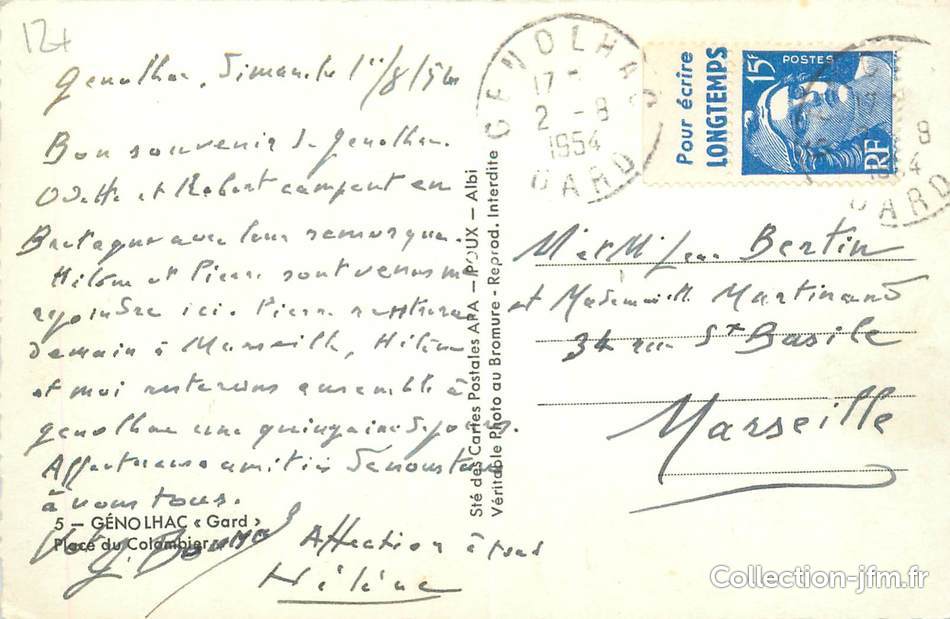 12+
Genolhac, Dimanche 1er/8/54
Bon souvenir de Genolhac.
Odette et Robert campent en
Bretagne avec leur remorque.
Hélène et Pierre sont venus me
rejoindre ici. Pierre rentrera
demain à Marseille, Hélène
et moi resterons ensemble à
Genolhac une quinzaine de jours.
Affectueuses amitiés de nous tous
à vous tous.
5 — GÉNOLHAC « Gard »
Place du Colombier
Affection à tous
Hélène
Sté des Cartes Postales APA - POUX - Albi
Véritable Photo au Bromure - Reprod. Interdite
GENOLHAC
17 -
2 - 8
1954
GARD
Pour écrire
LONGTEMPS
15F
POSTES
RF
17
8
GARD
Mr et Mme Bertin
et Mademoiselle Martinand
34 rue St Basile
Marseille
Collection-jfm.fr